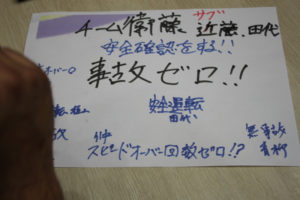 チーム衛藤 サブ 近藤.田代
安全確認をする!!
オーバー0
事故ゼロ!!
安全運転
田代
無事故
スピードオーバー回数ゼロ!?